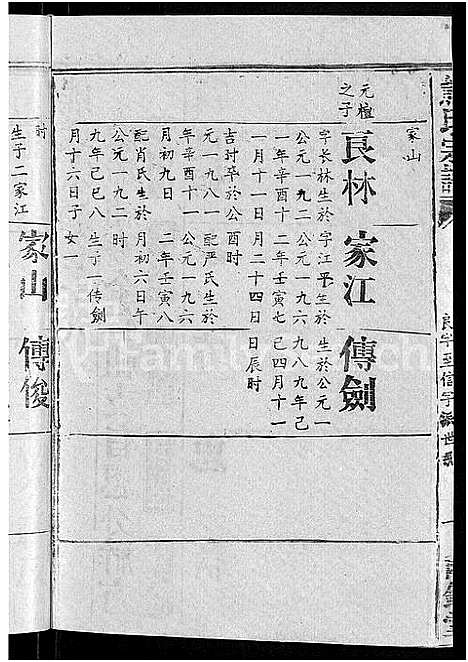 氏宗譜
良字至信字派世系
一
家山
元檀
之子
良林 家江 傳劍
字长林生於 字江平生於 生於公元一
公元一九二 公元一九六 九八九年己
一年辛酉十 二年壬寅七 巳四月十一
一月十一日 月二十四日 日辰时
吉时卒於公 酉时
元一九八一 配严氏生於
年辛酉十一 公元一九六
月初九日 二年壬寅八
配肖氏生於 月初六日午
公元一九二 时
九年己巳八 生子一传劍
月十六日子 女一
时
生子二家江
家山 傳俊